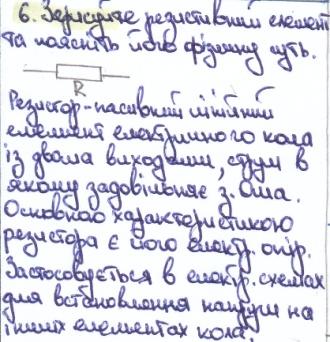 6. Зарисуйте резистивний елемент
та поясніть його фізичну суть.
R
Резистор-пасивний лінійний
елемент електричного кола
із двома виходами, струм в
якому задовільняє з. Ома.
Основною характеристикою
резистора є його електр. опір.
Застосовується в електр. схемах
для встановлення напруги на
інших елементах кола.